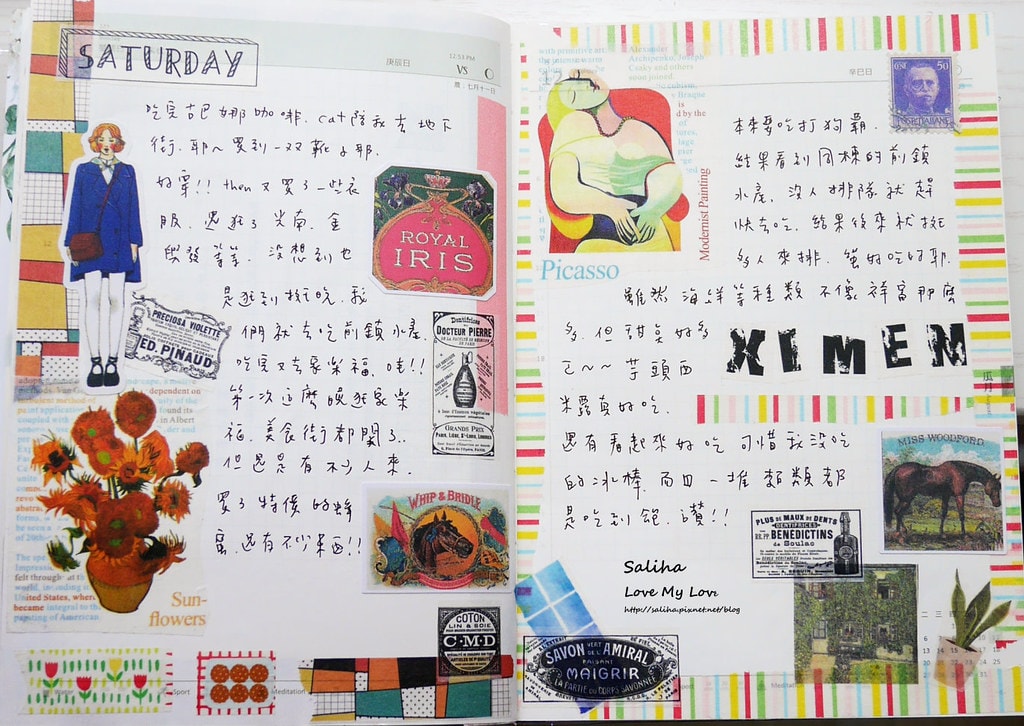 SATURDAY
庚辰日
12:53 PM
VS
曆:七月十一日
吃完古巴娜咖啡. cat 我去地下
街.耶~買到一双靴子耶.
好穿!! then又買了一些衣
服.還逛了光南.金
興發等等.沒想到也
是逛到挺晚.我
們就去吃前鎮水產.
吃完又去家樂福.哇!!
第一次這麼晚逛家樂
福.美食街都關了..
但還是有不少人來.
買了特價的蜂
蜜.還有不少東西!!
ROYAL
IRIS
PRECIOSA VIOLETTE
ED. PINAUD
Dentifrices
DOCTEUR PIERRE
GRANDS PRIX
WHIP & BRIDLE
COTON
LIN & SOIE
C·M·D
Sun-
flowers
Sport
Meditation
辛巳日
Modernist Painting
Picasso
本來要吃打狗霸.
結果看到同棟的前鎮
水產.沒人排隊就趕
快去吃.結果後來就挺
多人來排.蠻好吃的耶.
雖然海鮮等種類不像祥富那麼
多.但甜 好多
己~~芋頭西
米露真好吃.
XIMEN
還有看起來好吃可惜我沒吃
的冰棒.而且一堆 類都
是吃到飽.讚!!
MISS WOODFORD
PLUS DE MAUX DE DENTS
DENTIFRICES
RR.PP. BENEDICTINS
de Soulac
Saliha
Love My Love
http://saliha.pixnet.net/blog
SAVON VERT DE L'AMIRAL
FAISANT
MAIGRIR
LA PARTIE DU CORPS SAVONNÉE